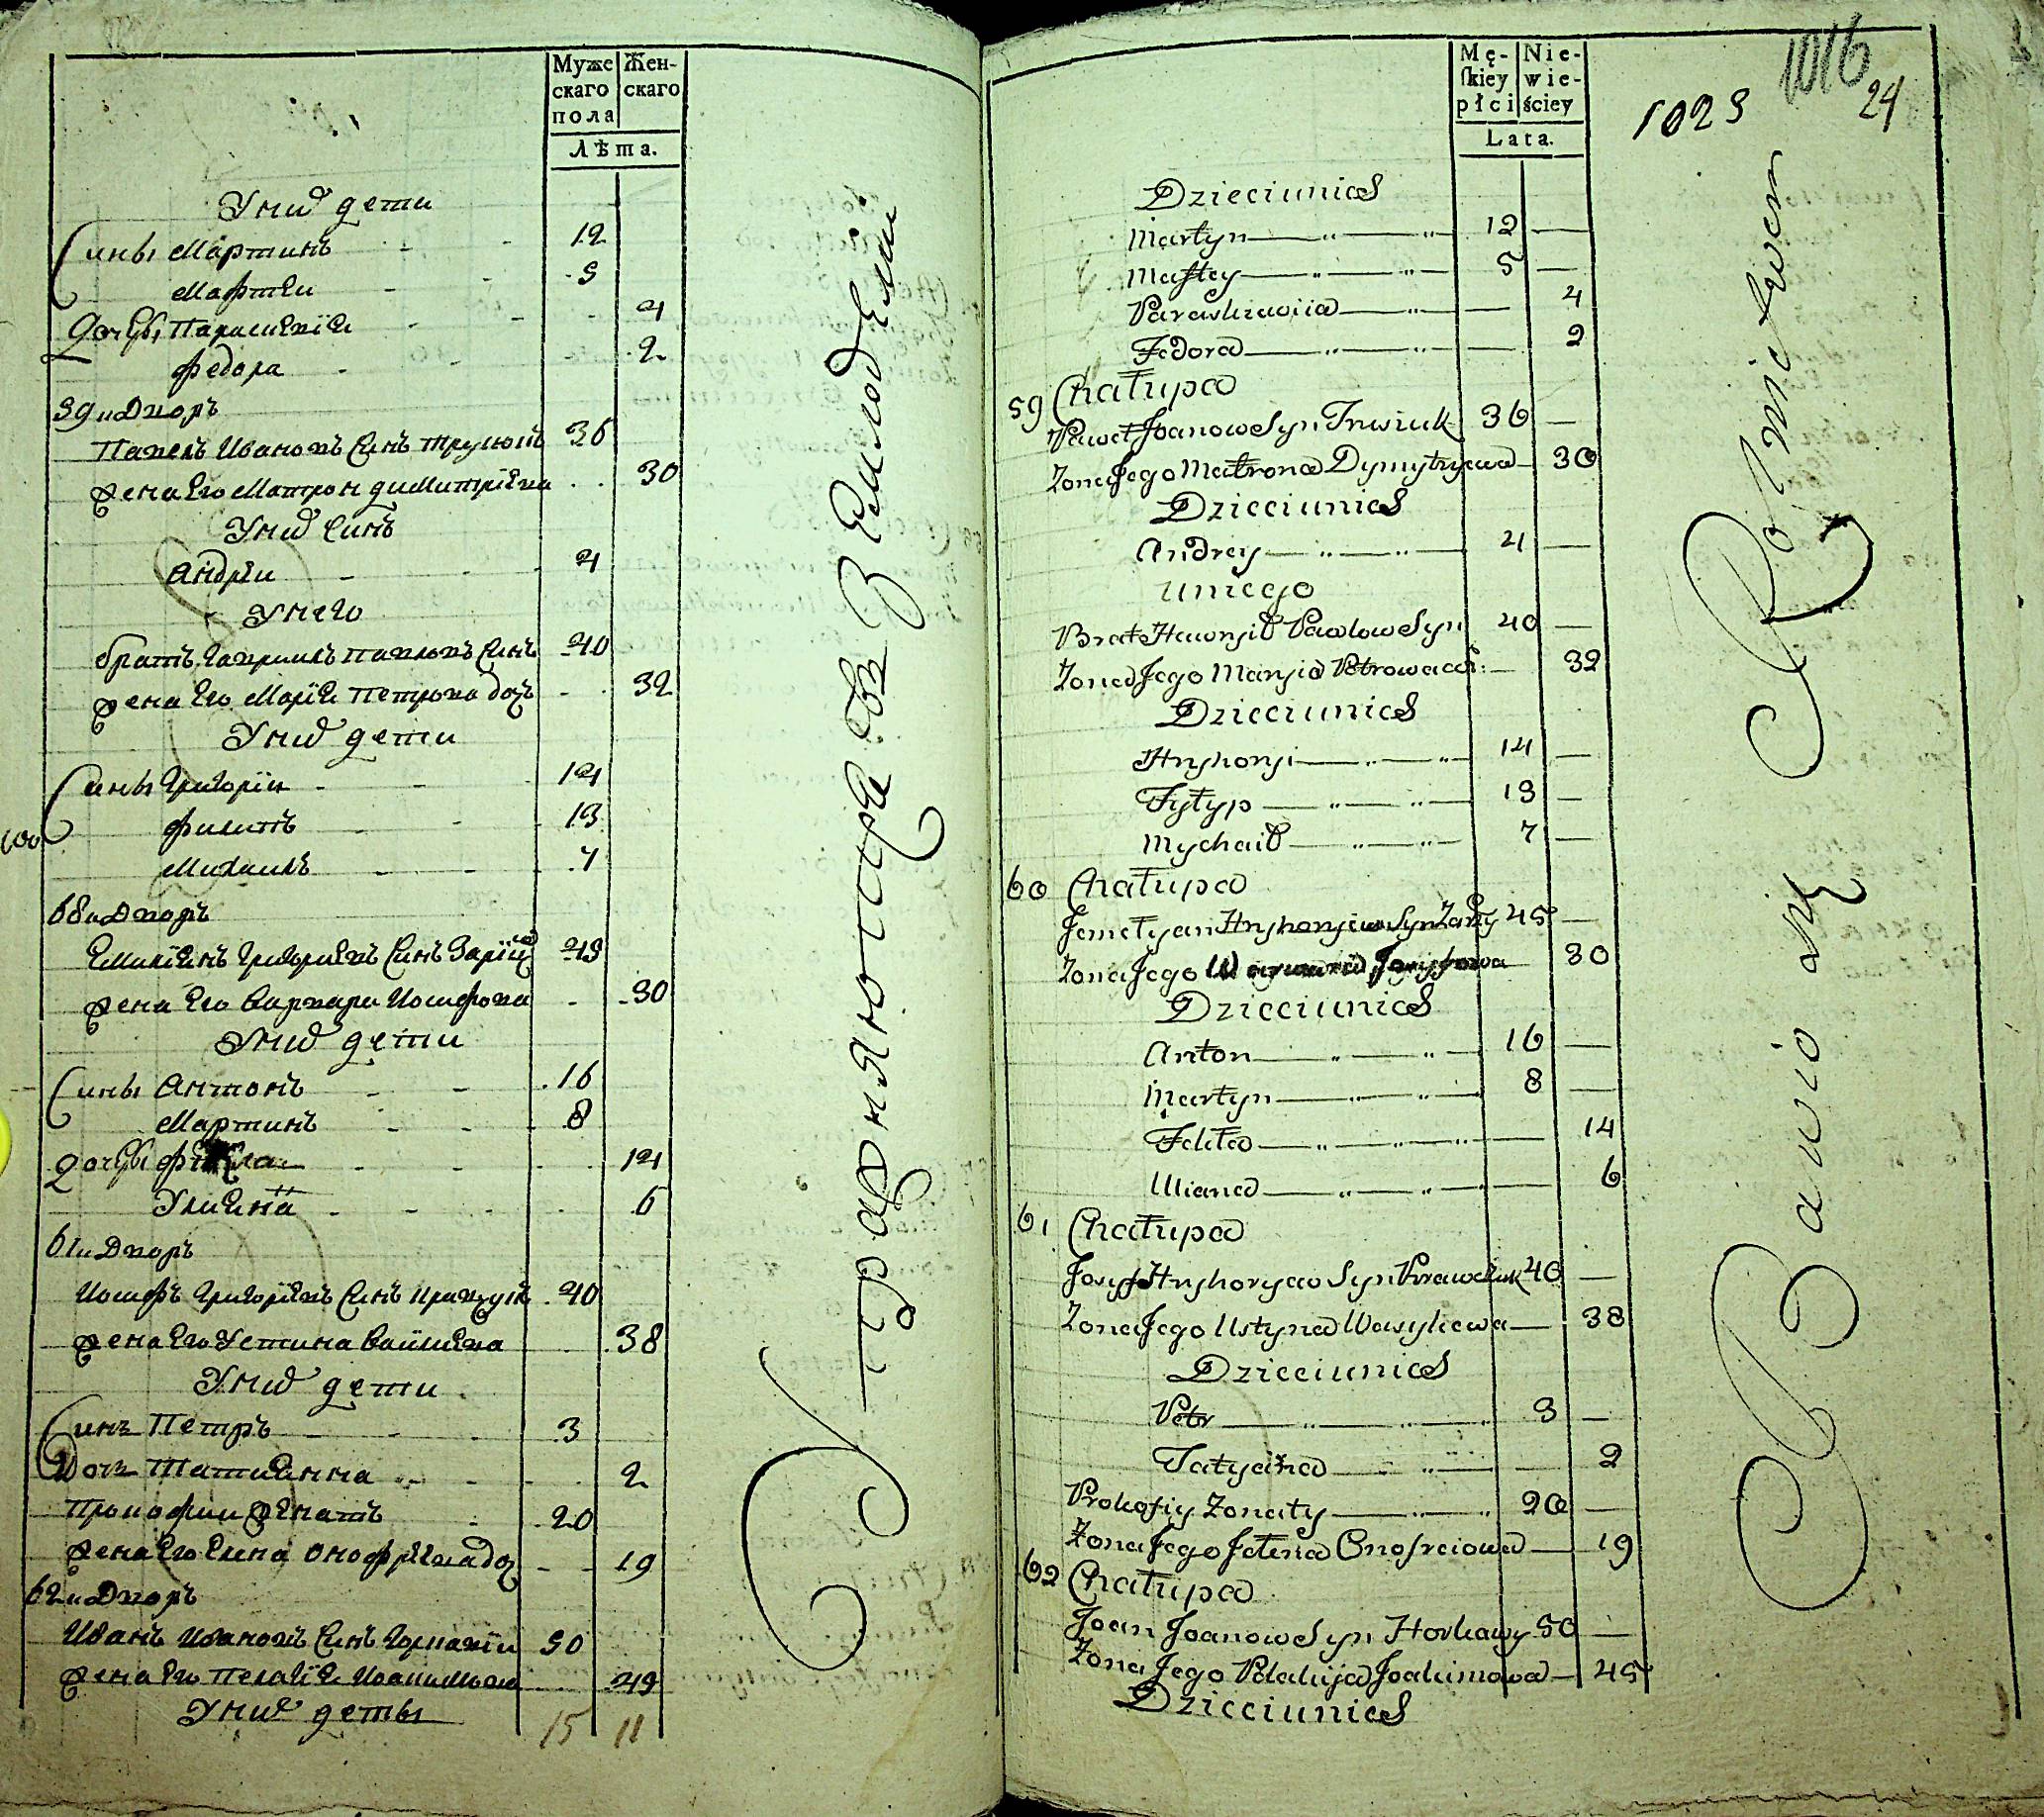 Муже скаго пола
Жен- скаго
Лѣта.
У них дети
Сины Мартинъ 12
Мафтеи 5
Дочеры Параскевія 4
Федора 2
59и Дворъ
Павелъ Ивановъ Синъ 36
Жена Его Матрона Димитріева 30
У них Синъ
Андреи 4
У него
братъ Гавриилъ Павловъ Синъ 40
Жена Его Марія Петрова доч 32
У них дети
Сины Григоріи 14
Филипъ 13
Михаилъ 7
60и Дворъ
Емиліянъ Григориевъ Синъ 45
Жена Его Варвара Иосифова 30
У них дети
Сины Антонъ 16
Мартинъ 8
Дочеры 14
Улияна 6
61и Дворъ
Иосифъ Григоріевъ Синъ Кравчукъ 40
Жена Его Устина Василіева 38
У них дети
Синъ Петръ 3
Дочь Татиянна 2
Прокофии Женатъ 20
Жена Его Елена Онофріева доч 19
62и Дворъ
Иванъ Ивановъ Синъ 50
Жена Его Пелагія 45
У них деты
15 11
Mę- ſkiey płci
Nie- wie- ściey
Lata.
1023
1016
24
Dzieciunich
Martyn 12 —
Maftey 5 —
Paraskiewiia — 4
Fedora — 2
59 Chałupa
Paweł Joanow Syn 36 —
Zona Jego Matrona Dymytryewa 30
Dzieciunich
Andrey 4 —
Uniego
Brat Hawryił Pawlow Syn 40 —
Zona Jego Maryia Petrowa — 32
Dzieciunich
Hryhoryi 14 —
Fyłyp 13 —
Mychaił 7 —
60 Chałupa
Jemełyan Hryhoryiew Syn 45 —
Zona Jego Warwara Jozyfowa 30
Dzieciunich
Anton 16 —
Martyn 8 —
Fekła — 14
Uliana — 6
61 Chałupa
Jozyf Hryhoryew Syn Krawczuk 40 —
Zona Jego Ustyna Wasylewa — 38
Dzieciunich
Petr 3 —
Tatyana — 2
Prokofiy Zonaty 20 —
Zona Jego Jełena Onofreiowa — 19
62 Chałupa
Joan Joanow Syn 50 —
Zona Jego Pelahija Joakimowa — 45
Dzieciunich
Bawią się Rolnictwem